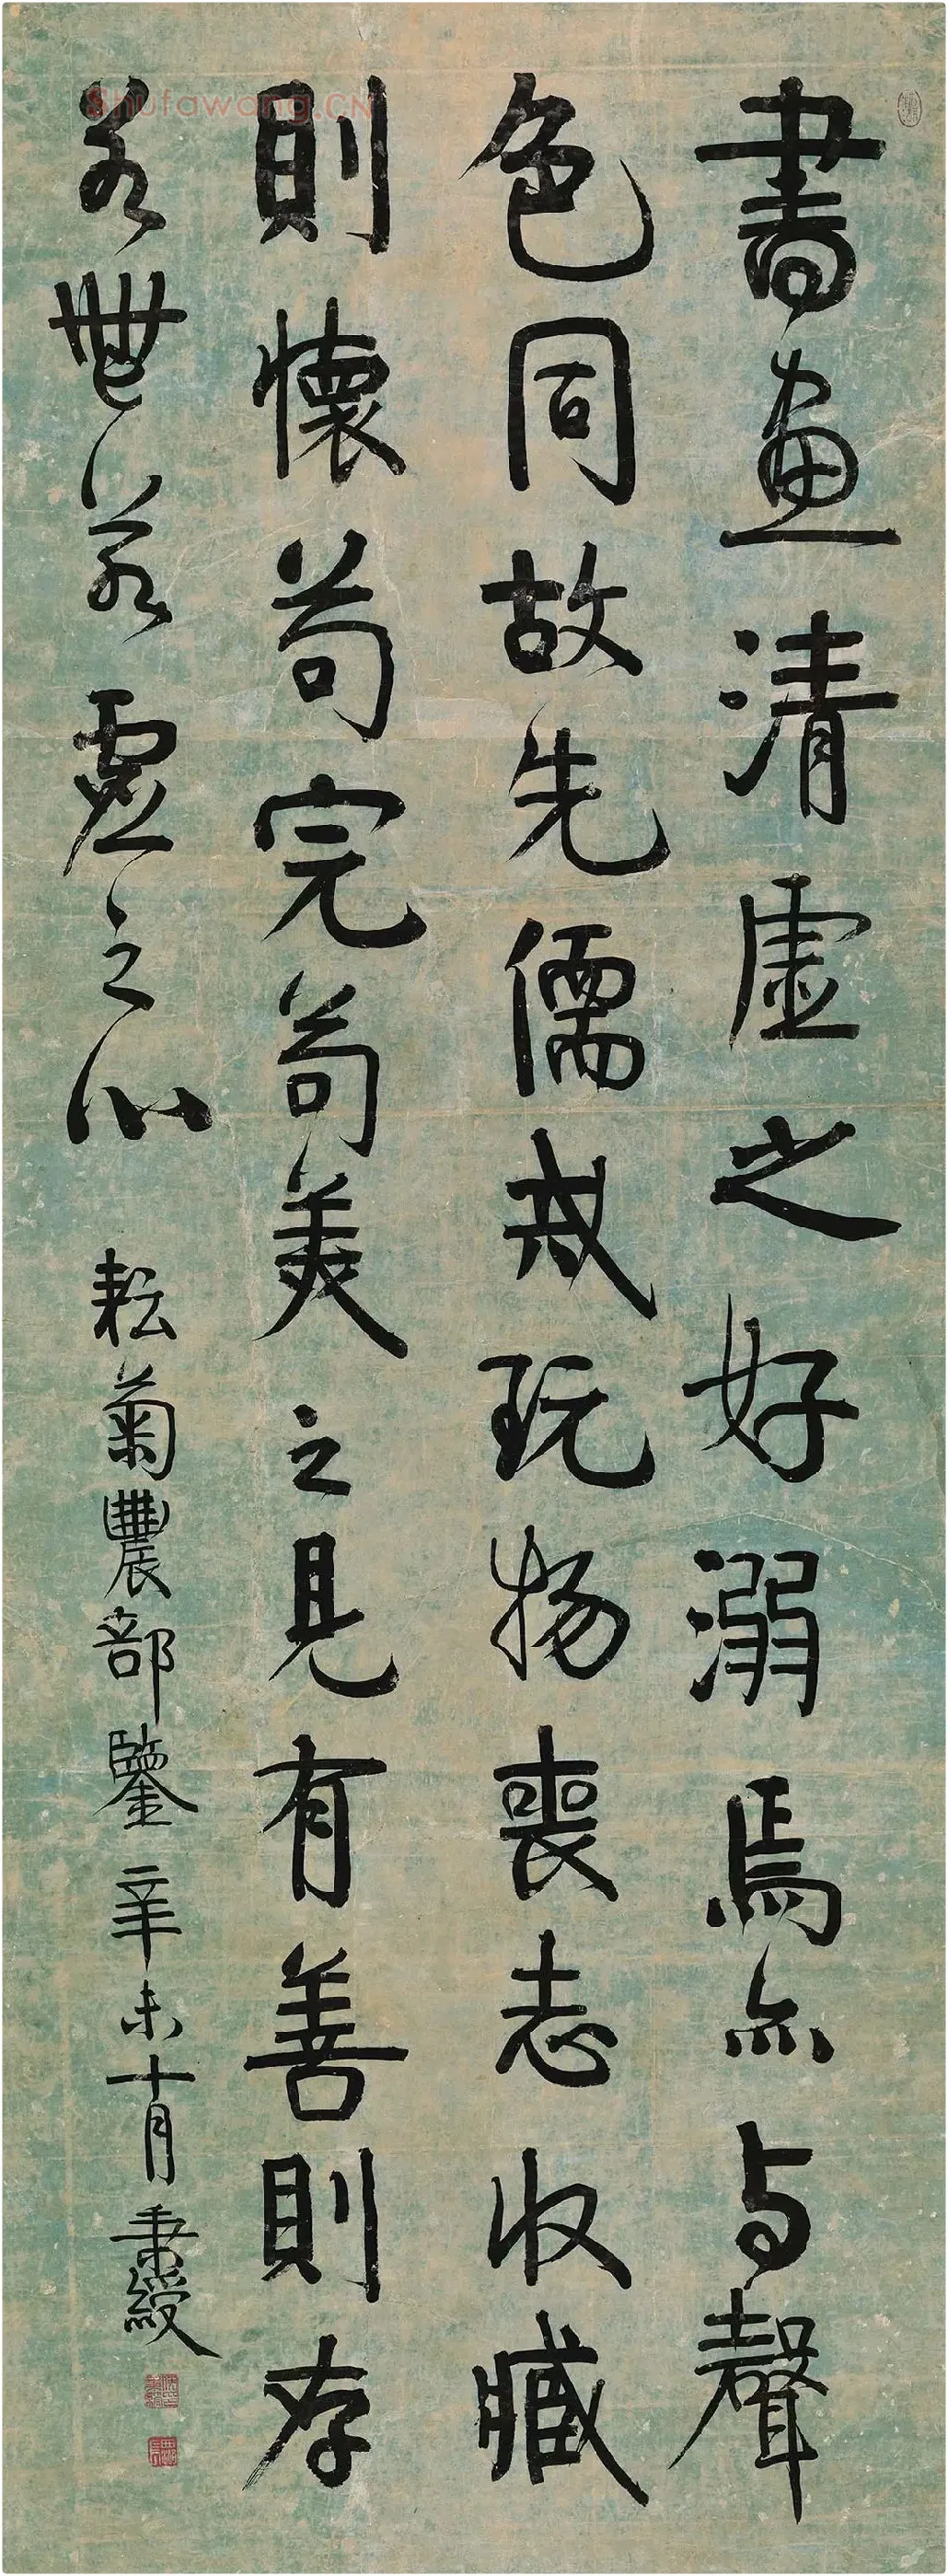 書畫清虛之好溺焉亦与聲
色同故先儒戒玩物喪志收臧
則懷苟完苟美之見有善則存
若無若虛之心
耘菊農部鑒 辛未十月 秉綬
Shufawang.CN